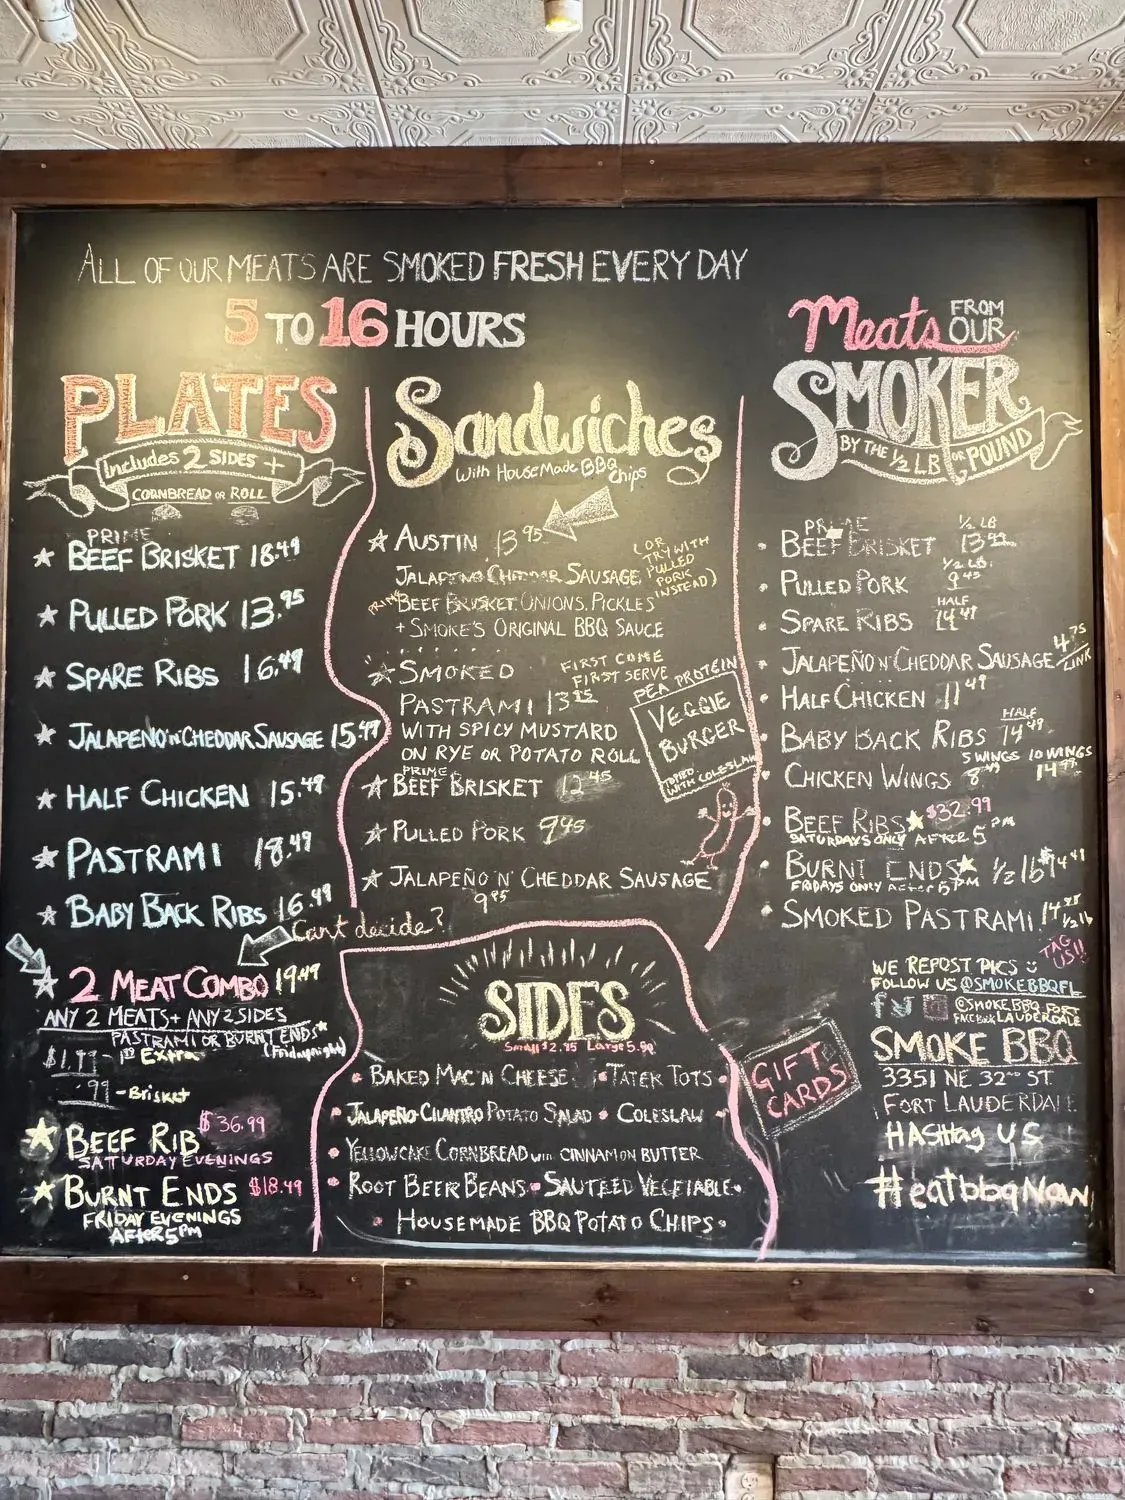 ALL OF OUR MEATS ARE SMOKED FRESH EVERY DAY
5 TO 16 HOURS
PLATES
Includes 2 SIDES +
CORNBREAD OR ROLL
PRIME
★ BEEF BRISKET 18.49
★ PULLED PORK 13.95
★ SPARE RIBS 16.49
★ JALAPENO 'n' CHEDDAR SAUSAGE 15.49
★ HALF CHICKEN 15.49
★ PASTRAMI 18.49
★ BABY BACK RIBS 16.49
Can't decide?
★ 2 MEAT COMBO 19.49
ANY 2 MEATS + ANY 2 SIDES
PASTRAMI OR BURNT ENDS*
(Fridaynight)
Extra
.99 - Brisket
★ BEEF RIB $36.99
SATURDAY EVENINGS
★ BURNT ENDS $18.49
FRIDAY EVENINGS
AFter 5PM
Sandwiches
With HouseMade BBQ
Chips
★ AUSTIN 13.95
(OR
TRY WITH
PULLED
PORK
INSTEAD)
JALAPENO CHEDDAR SAUSAGE,
PRIME BEEF BRISKET, ONIONS, PICKLES
+ SMOKE'S ORIGINAL BBQ SAUCE
FIRST COME
FIRST SERVE
★ SMOKED
PASTRAMI
WITH SPICY MUSTARD
ON RYE OR POTATO ROLL
PEA PROTEIN
VEGGIE
BURGER
TOPPED
WITH COLESLAW
PRIME
★ BEEF BRISKET 12.45
★ PULLED PORK 9.45
★ JALAPEÑO 'N' CHEDDAR SAUSAGE
9.95
SIDES
Small $2.95 Large 5.50
• BAKED MAC 'N CHEESE • TATER TOTS •
• JALAPEÑO CILANTRO POTATO SALAD • COLESLAW
• YELLOWCAKE CORNBREAD with CINNAMON BUTTER
• ROOT BEER BEANS • SAUTEED VEGETABLE •
• HOUSEMADE BBQ POTATO CHIPS •
Meats FROM
OUR
SMOKER
BY THE ½ LB OR POUND
PRIME ½ LB
• BEEF BRISKET
½ LB.
• PULLED PORK 9.45
HALF
• SPARE RIBS 14.49
• JALAPEÑO 'N' CHEDDAR SAUSAGE 4.75/LINK
• HALF CHICKEN 11.49
HALF
• BABY BACK RIBS 14.49
5 WINGS 10 WINGS
• CHICKEN WINGS 8.49 14.99
• BEEF RIBS★ $32.99
SATURDAYS ONLY AFTER 5PM
• BURNT ENDS★ ½ lb $14.49
FRIDAYS ONLY AFter 5PM
• SMOKED PASTRAMI ½ lb
TAG
US!!
WE REPOST PICS
FOLLOW US @SMOKEBBQFL
@SMOKE BBQ FORT
FACEBOOK LAUDERDALE
GIFT
CARDS
SMOKE BBQ
3351 NE 32ND ST
FORT LAUDERDALE
HASHtag US
#eatbbqNow